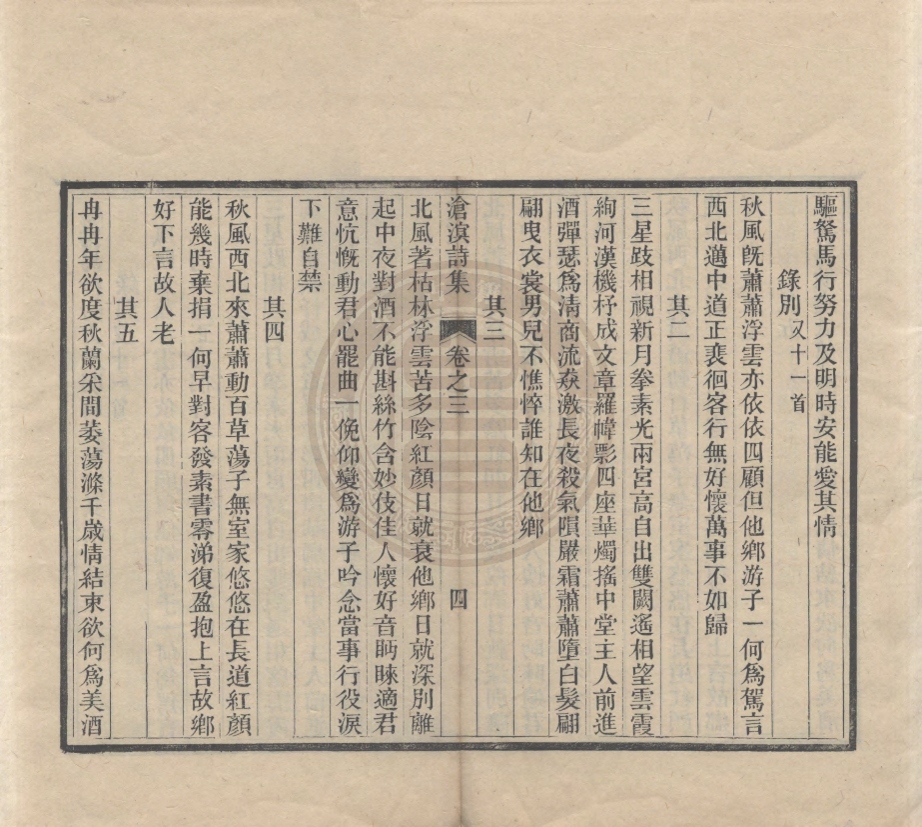 驅駑馬行努力及明時安能愛其情
錄別又十一首
秋風旣蕭蕭浮雲亦依依四顧但他鄉游子一何爲駕言
西北邁中道正裴徊客行無好懷萬事不如歸
其二
三星跂相視新月拳素光兩宮高自出雙闕遙相望雲霞
絢河漢機杼成文章羅幃影四座華燭搖中堂主人前進
酒彈瑟爲淸商流猋激長夜殺氣隕嚴霜蕭蕭墮白髮翩
翩曳衣裳男兒不憔悴誰知在他鄉
其三
滄溟詩集 卷之三 四
北風著枯林浮雲苦多陰紅顏日就衰他鄉日就深別離
起中夜對酒不能斟絲竹含妙伎佳人懷好音眄睞適君
意忼慨動君心罷曲一俛仰變爲游子吟念當事行役淚
下難自禁
其四
秋風西北來蕭蕭動百草蕩子無室家悠悠在長道紅顏
能幾時棄捐一何早對客發素書零涕復盈抱上言故鄉
好下言故人老
其五
冉冉年欲度秋蘭采間萎蕩滌千歲情結束欲何爲美酒